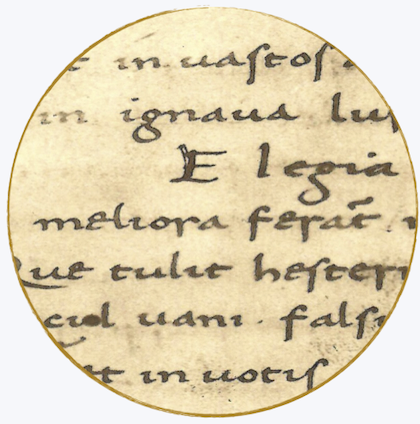 t in uastos
in ignaua lu
Elegia
meliora ferāt
Que tulit hester
cul uani · fals
t in uotis